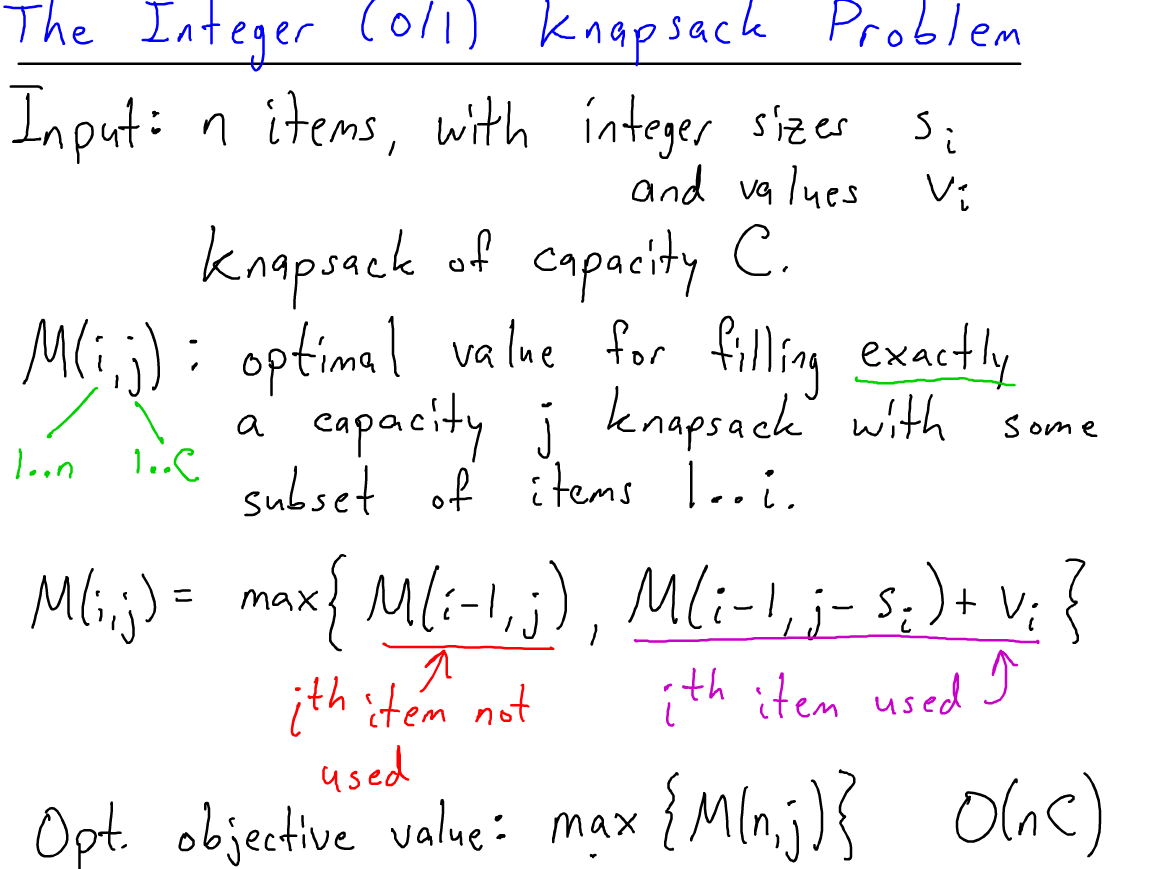 The Integer (0/1) Knapsack Problem
Input: n items, with integer sizes sᵢ
and values vᵢ
Knapsack of capacity C.
M(i,j): optimal value for filling exactly
a capacity j knapsack with some
1..n 1..C
subset of items 1..i.
M(i,j) = max{ M(i-1, j), M(i-1, j- sᵢ)+ vᵢ }
iᵗʰ item not iᵗʰ item used
used
Opt. objective value: max {M(n,j)} O(nC)